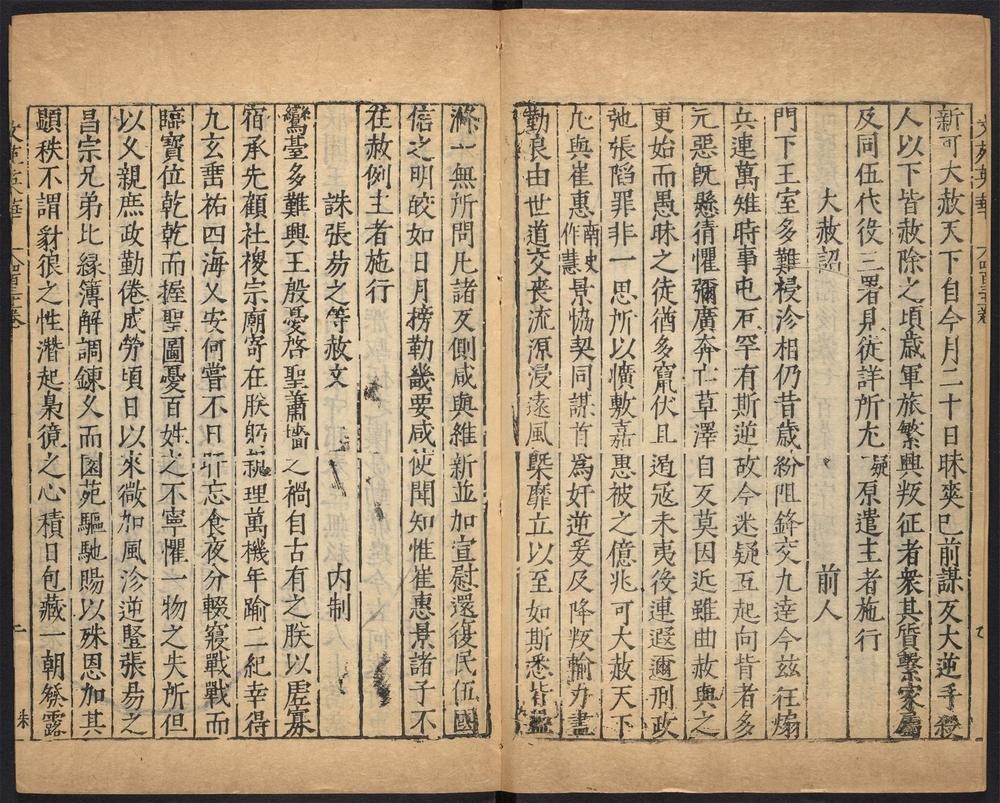 新可大赦天下自今月二十日昧爽已前謀反大逆手殺
人以下皆赦除之頃歳軍旅繁興叛征者衆其質繫家屬
及同伍代役三署見徒詳所尤疑原遣主者施行
大赦詔 前人
門下王室多難祲沴相仍昔歲紛阻鋒交九逵今茲在煽
兵連萬雉時事屯否罕有斯逆故今迷疑互起向背者多
元惡旣懸猜懼彌廣奔亡草澤自反莫因近雖曲赦與之
更始而愚昧之徒猶多竄伏且逋冦未夷役連遐邇刑政
弛張陷罪非一思所以懭敷嘉惠被之億兆可大赦天下
凢與崔惠南史作慧景恊契同謀首爲奸逆爰及降叛輸力盡
勤良由世道交喪流源浸遠風槩靡立以至如斯悉皆盪
滌一無所問凢諸反側咸與維新並加宣慰還復民伍國
信之明皎如日月搒勒畿要咸使聞知惟崔惠景諸子不
在赦例主者施行
誅張昜之等赦文 内制
鸞臺多難興王殷憂啓聖蕭墻之禍自古有之朕以虛寡
宿承先顧社稷宗廟寄在朕躬親理萬機年踰二紀幸得
九玄垂祐四海乂安何嘗不日旰忘食夜分輟寢戰戰而
臨寶位乾乾而握聖圖憂百姓之不寧懼一物之失所但
以乂親庶政勤倦成勞頃日以來微加風沴逆竪張昜之
昌宗兄弟比縁簿解調錬乂而園苑驅馳賜以殊恩加其
顯秩不謂豺很之性潛起梟獍之心積日包藏一朝發露